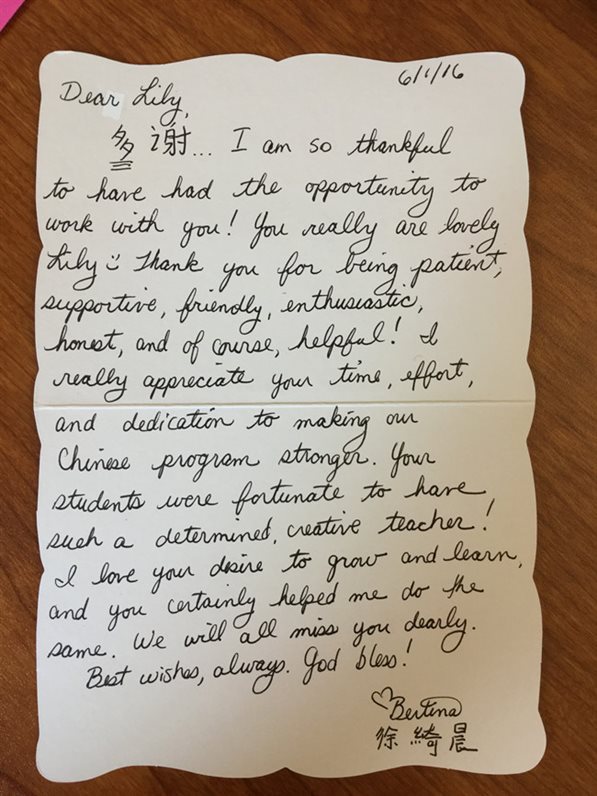 6/1/16
Dear Lily,
多謝... I am so thankful
to have had the opportunity to
work with you! You really are lovely
Lily :) Thank you for being patient,
supportive, friendly, enthusiastic,
honest, and of course, helpful! I
really appreciate your time, effort,
and dedication to making our
Chinese program stronger. Your
students were fortunate to have
such a determined, creative teacher!
I love your desire to grow and learn,
and you certainly helped me do the
same. We will all miss you dearly.
Best wishes, always. God bless!
♡Bertina
徐綺晨